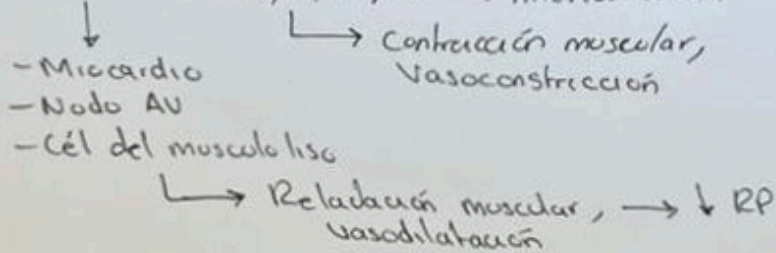 ↓ ↳ Contracción muscular,
- Miocardio Vasoconstricción
- Nodo AV
- Cél del musculo liso
↳ Reladación muscular, → ↓ RP
vasodilatación